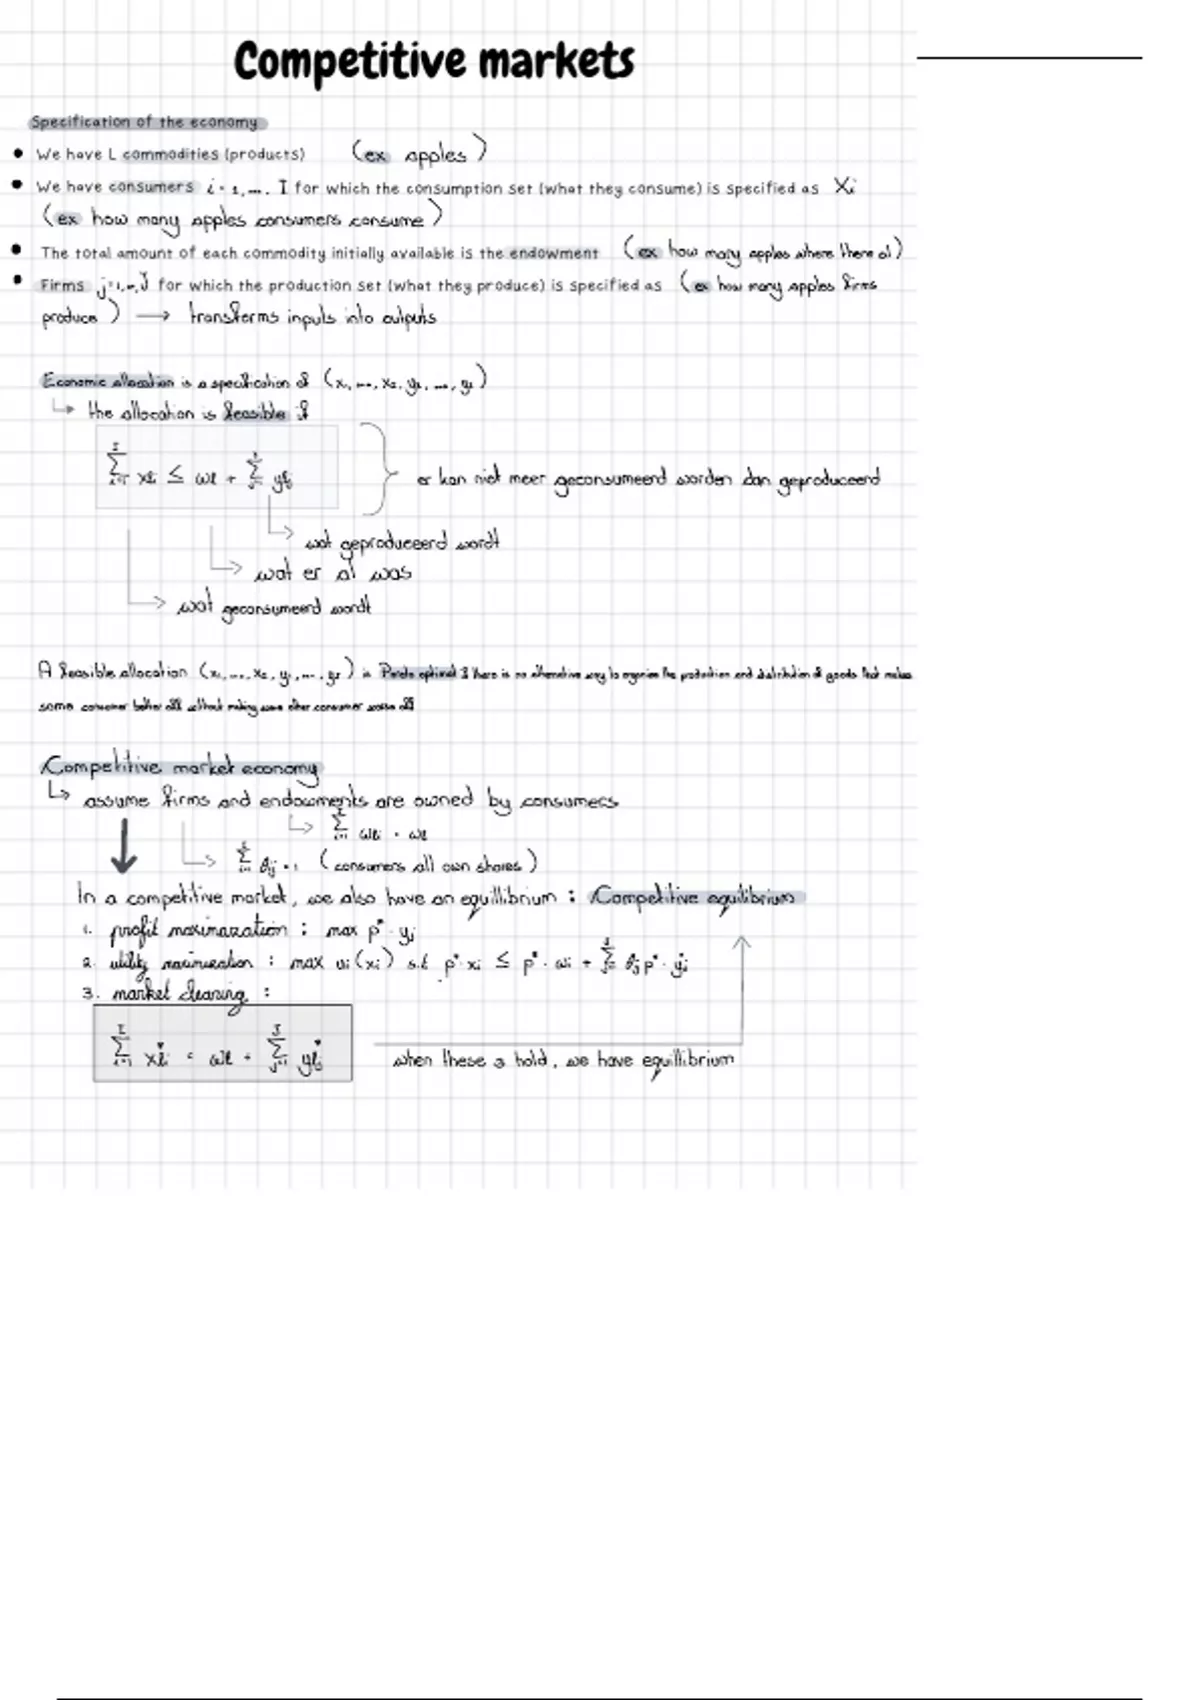 Competitive markets
Specification of the economy
• We have L commodities (products) (ex apples)
• We have consumers i = 1, ..., I for which the consumption set (what they consume) is specified as Xi
(ex how many apples consumers consume)
• The total amount of each commodity initially available is the endowment (ex how many apples where there al)
• Firms j=1,...,J for which the production set (what they produce) is specified as (ex how many apples firms
produce) → transforms inputs into outputs
Economic allocation is a specification of (x₁, ..., x₂, y₁, ..., yⱼ)
↳ the allocation is feasible if
∑ᵢ₌₁ᴵ xℓᵢ ≤ ωℓ + ∑ⱼ₌₁ᴶ yℓⱼ er kan niet meer geconsumeerd worden dan geproduceerd
wat geproduceerd wordt
wat er al was
wat geconsumeerd wordt
A feasible allocation (x₁, ..., x₂, y₁, ..., yⱼ) is Pareto optimal if there is no alternative way to organize the production and distribution of goods that makes
some consumer better off without making some other consumer worse off
Competitive market economy
↳ assume firms and endowments are owned by consumers
↳ ∑ᵢ₌₁ᴵ ωℓᵢ = ωℓ
↳ ∑ᵢ₌₁ᴵ θᵢⱼ = 1 (consumers all own shares)
In a competitive market, we also have an equillibrium : Competitive equilibrium
1. profit maximazation : max p* · yⱼ
2. utility maximization : max uᵢ(xᵢ) s.t p* · xᵢ ≤ p* · ωᵢ + ∑ⱼ₌₁ᴶ θᵢⱼ p* · yⱼ*
3. market clearing :
∑ᵢ₌₁ᴵ xℓᵢ* = ωℓ + ∑ⱼ₌₁ᴶ yℓⱼ* when these 3 hold, we have equillibrium